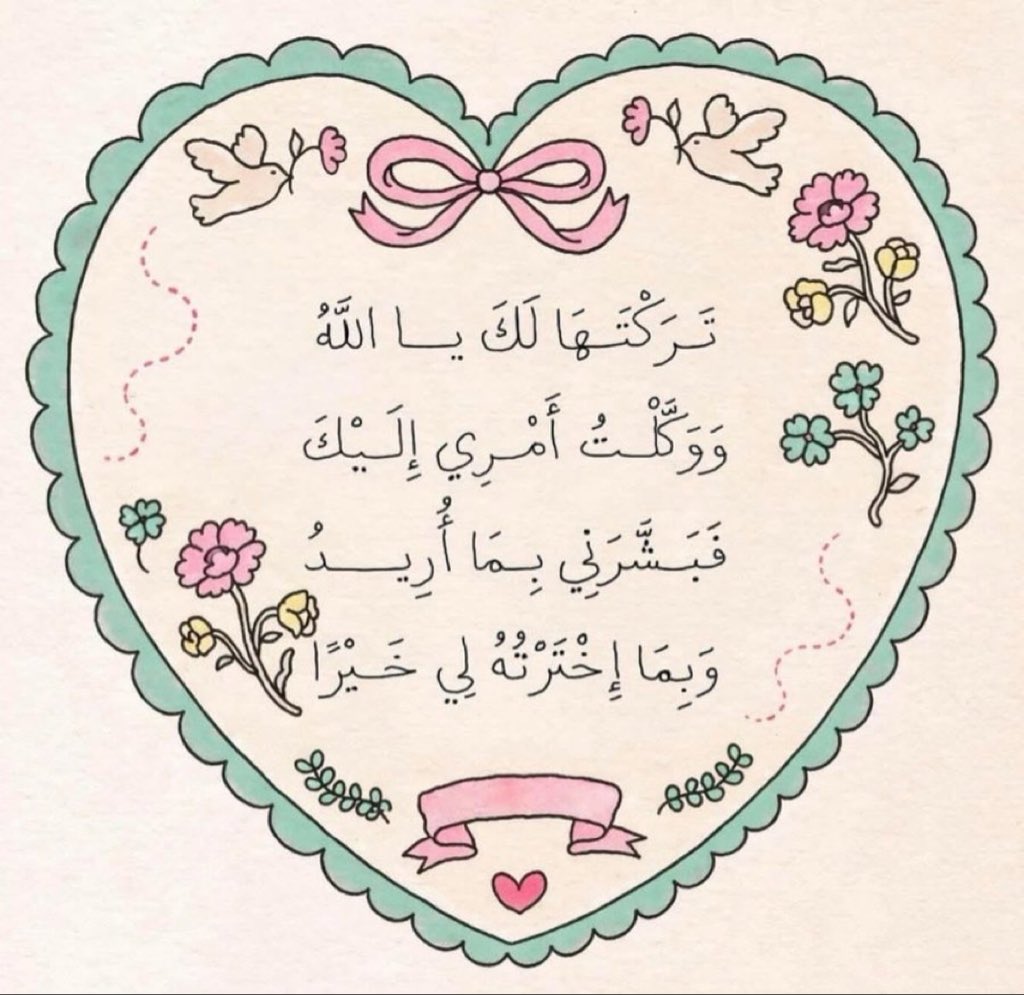 تَرَكْتَهَا لَكَ يا اللَّهُ
وَوَكَّلْتُ أَمْرِي إِلَيْكَ
فَبَشَّرَنِي بِمَا أُرِيدُ
وَبِمَا إِخْتَرْتُهُ لِي خَيْرًا